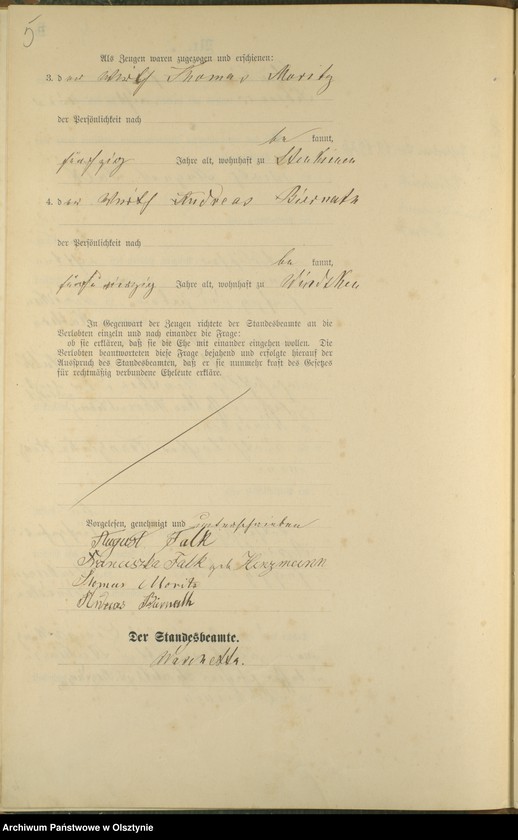 5
Als Zeugen waren zugezogen und erschienen:
3. der Wirth Thomas Moritz
der Persönlichkeit nach
be kannt,
fünfzig Jahre alt, wohnhaft zu
4. der Wirth Andreas Biernath
der Persönlichkeit nach
be kannt,
fünfundvierzig Jahre alt, wohnhaft zu
In Gegenwart der Zeugen richtete der Standesbeamte an die
Verlobten einzeln und nach einander die Frage:
ob sie erklären, daß sie die Ehe mit einander eingehen wollen. Die
Verlobten beantworteten diese Frage bejahend und erfolgte hierauf der
Ausspruch des Standesbeamten, daß er sie nunmehr kraft des Gesetzes
für rechtmäßig verbundene Eheleute erkläre.
Vorgelesen, genehmigt und unterschrieben
August Falk
Franciszka Falk geb Herrmann
Thomas Moritz
Andreas Biernath
Der Standesbeamte.
Archiwum Państwowe w Olsztynie